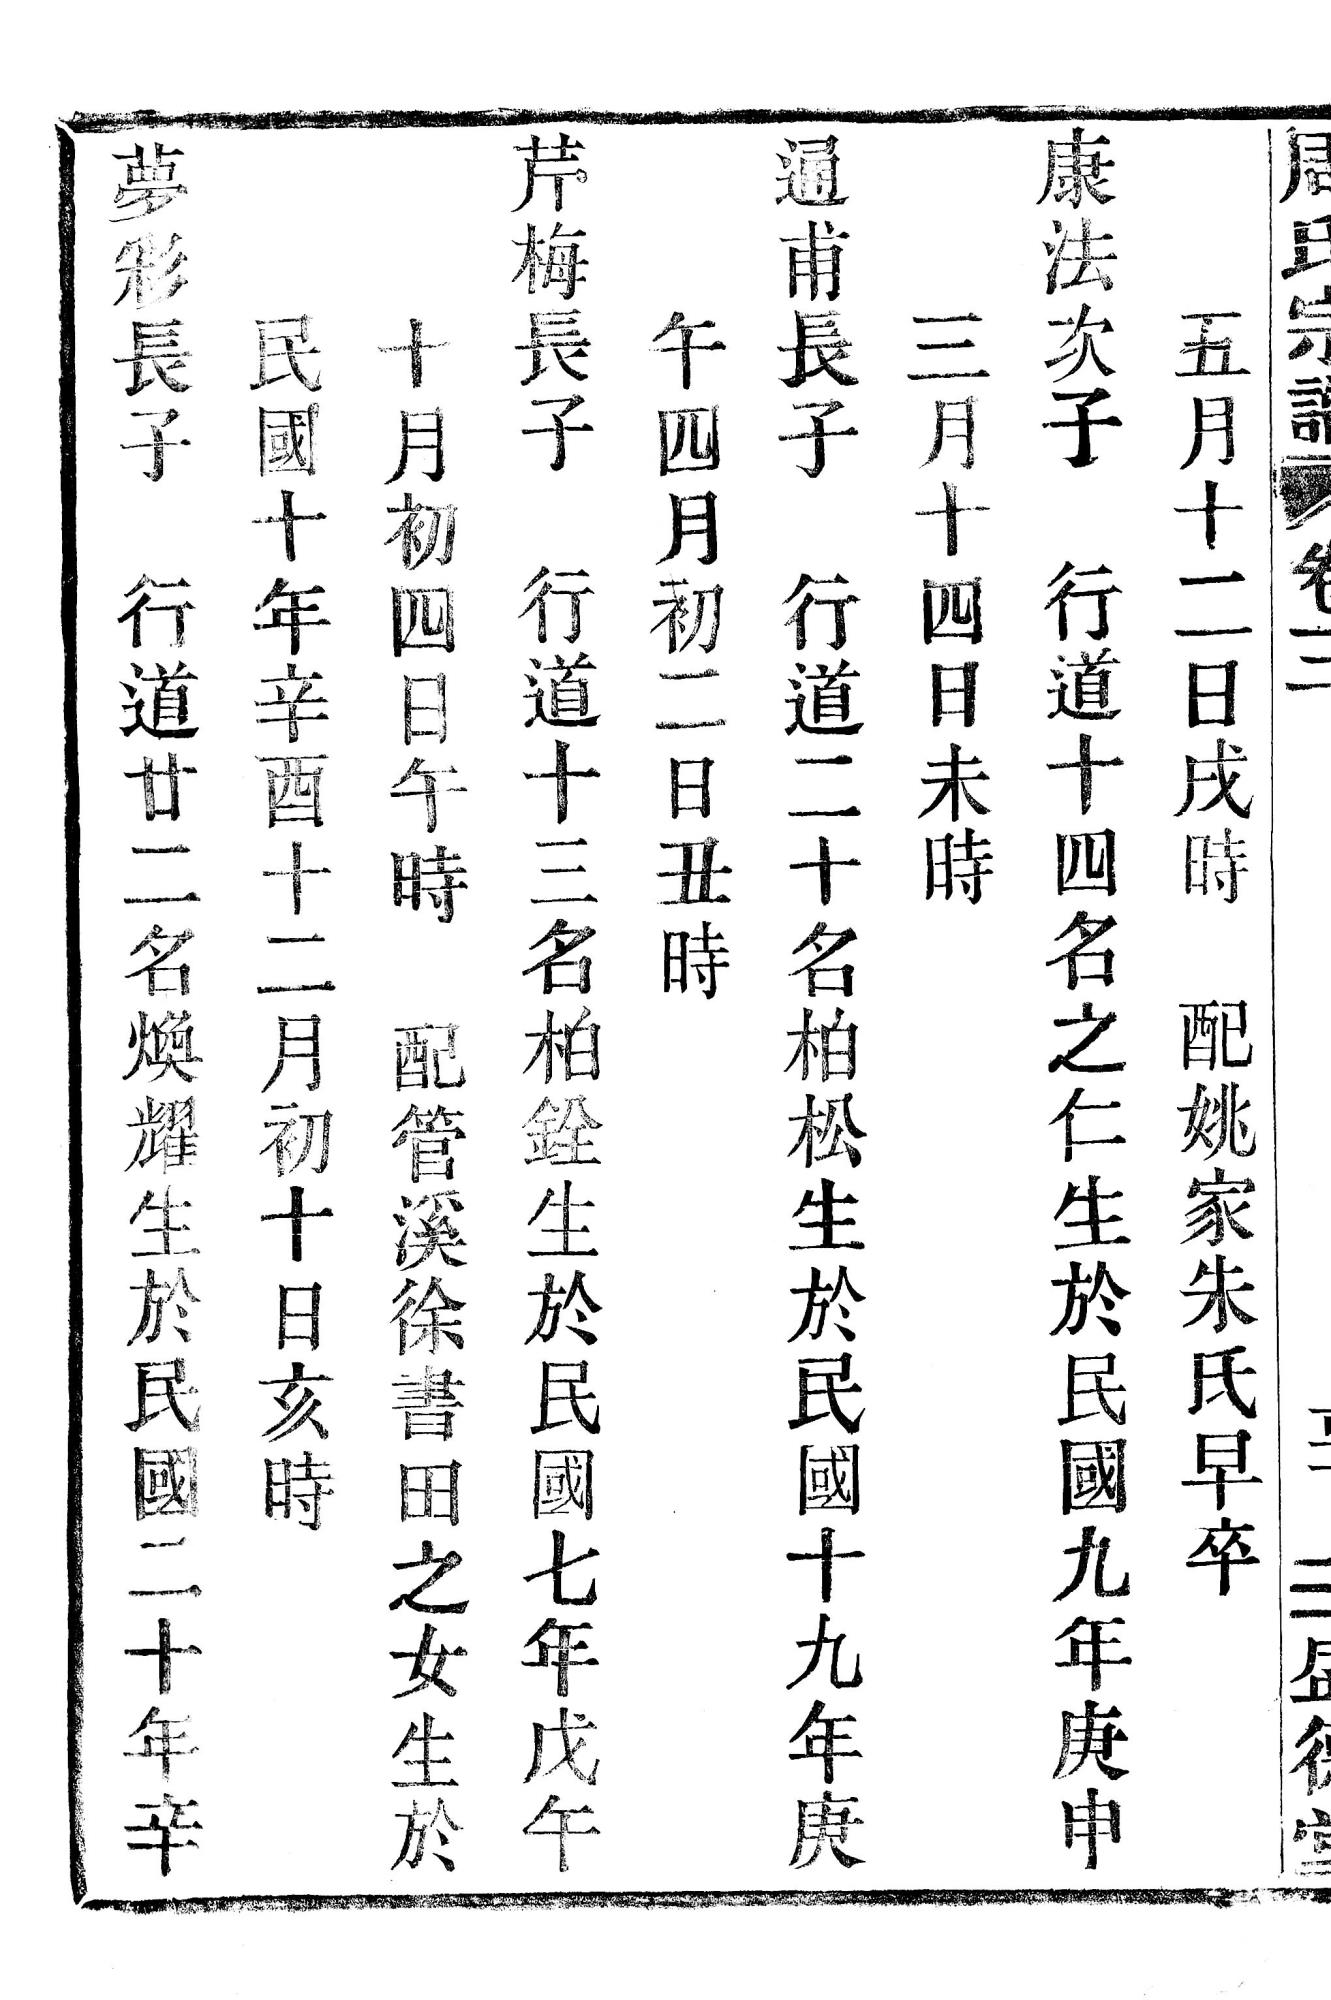 周氏宗譜 卷二 三盛德堂
五月十二日戌時 配姚家朱氏早卒
康法次子 行道十四名之仁生於民國九年庚申
三月十四日未時
通甫長子 行道二十名柏松生於民國十九年庚
午四月初二日丑時
芹梅長子 行道十三名柏銓生於民國七年戊午
十月初四日午時 配管溪徐書田之女生於
民國十年辛酉十二月初十日亥時
夢彩長子 行道廿二名煥耀生於民國二十年辛